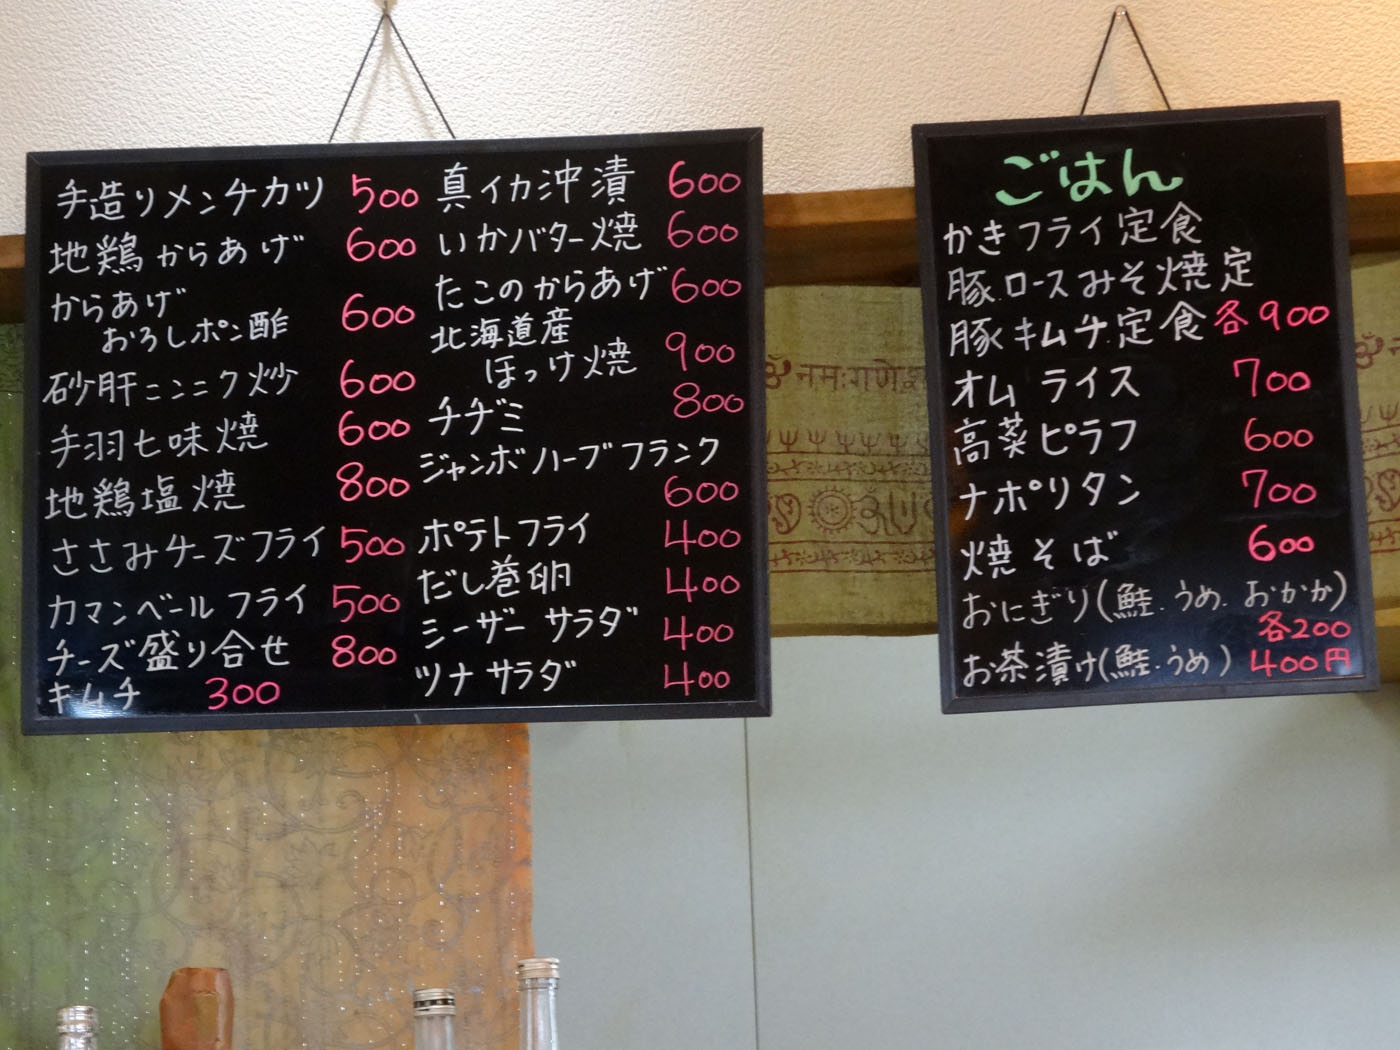 手造りメンチカツ 500
地鶏からあげ 600
からあげ
おろしポン酢 600
砂肝ニンニク炒 600
手羽七味焼 600
地鶏塩焼 800
ささみチーズフライ 500
カマンベールフライ 500
チーズ盛り合せ 800
キムチ 300
真イカ沖漬 600
いかバター焼 600
たこのからあげ 600
北海道産
ほっけ焼 900
チヂミ 800
ジャンボハーブフランク
600
ポテトフライ 400
だし巻卵 400
シーザーサラダ 400
ツナサラダ 400
ごはん
かきフライ定食
豚ロースみそ焼定
豚キムチ定食 各900
オムライス 700
高菜ピラフ 600
ナポリタン 700
焼そば 600
おにぎり(鮭.うめ.おかか)
各200
お茶漬け(鮭.うめ) 400円
नमः गणे